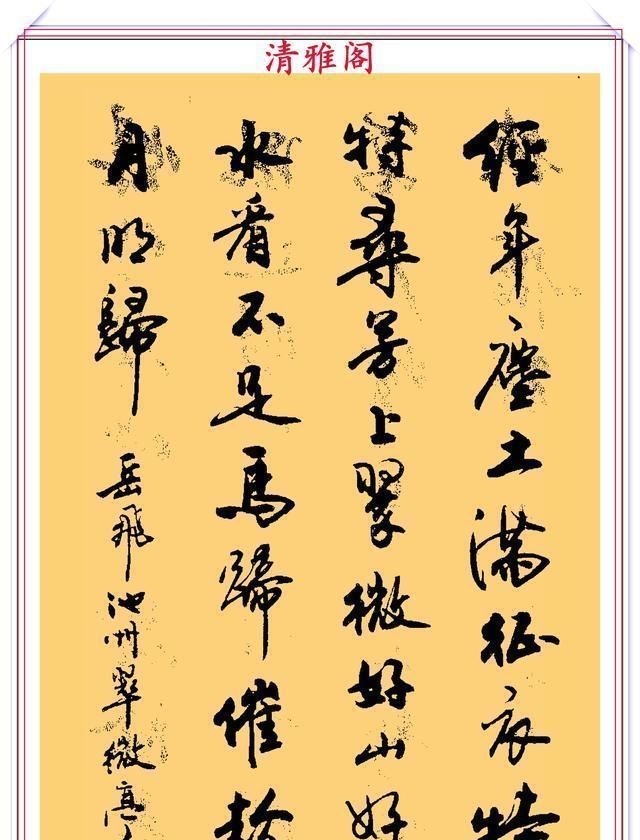 清雅阁
經年塵土滿征衣特
特尋芳上翠微好山好
水看不足馬蹄催趁
月明歸 岳飛池州翠微亭